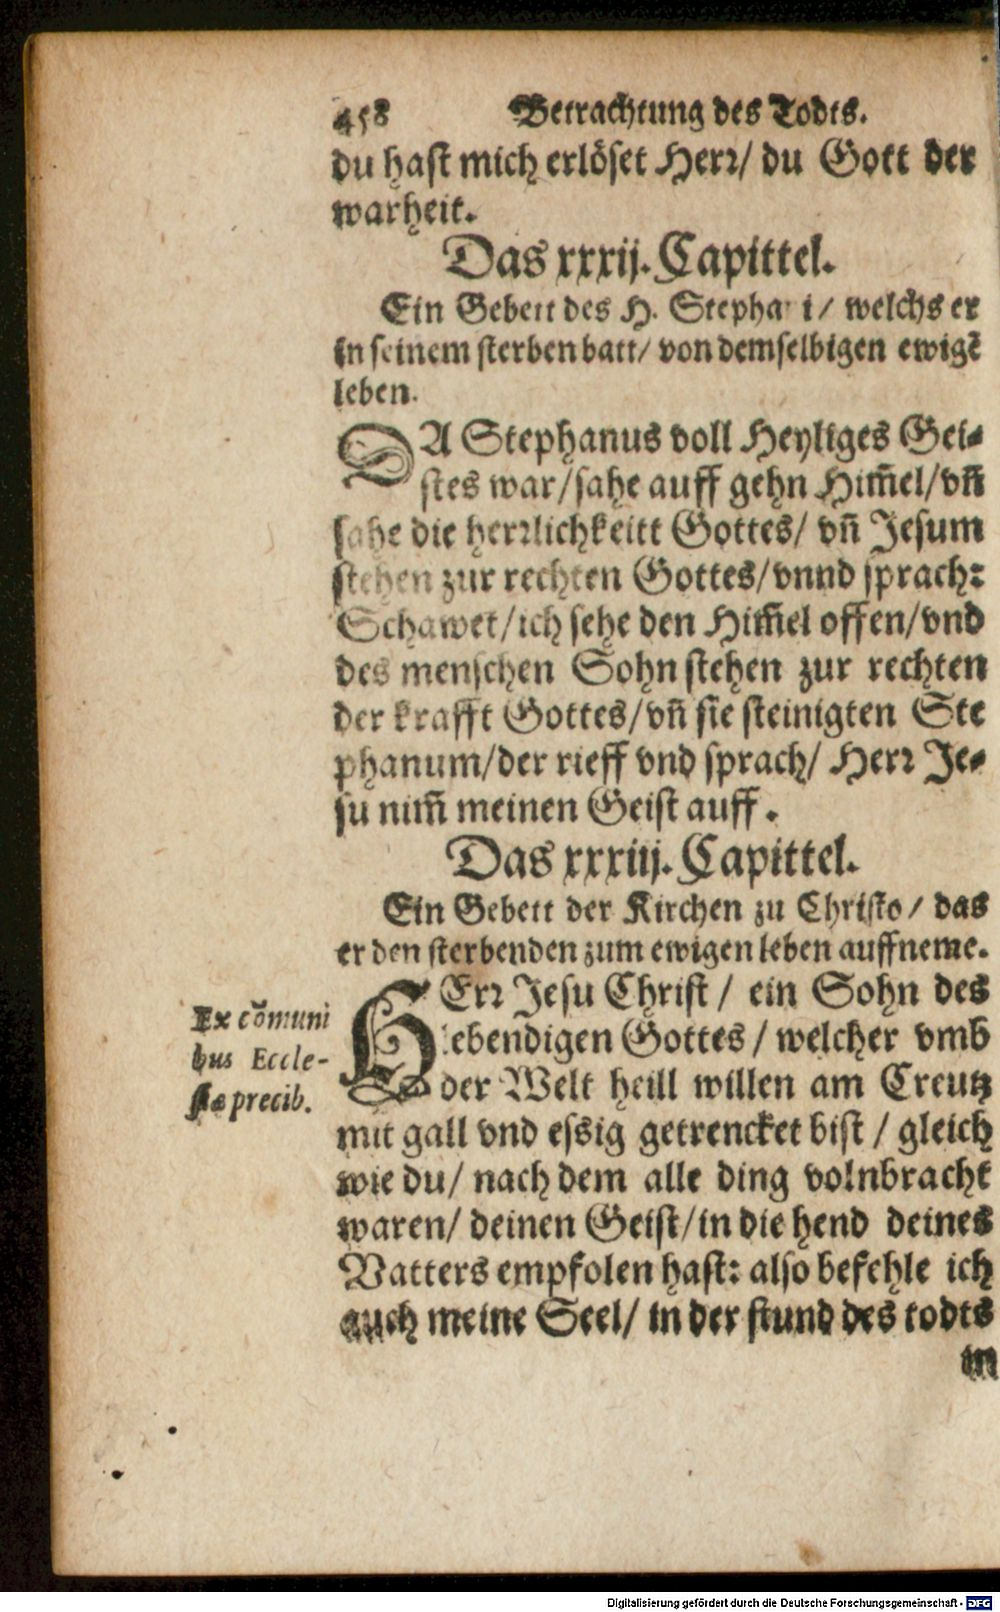 458 Betrachtung des Todts.
du hast mich erlöset Herr/ du Gott der
warheit.
Das xxxij. Capittel.
Ein Gebett des H. Stephani/ welchs er
in seinem sterben batt/ von demselbigen ewigē
leben.
DA Stephanus voll Heyliges Gei-
stes war/ sahe auff gehn Him̄el/ vn̄
sahe die herrlichkeitt Gottes/ vn̄ Jesum
stehen zur rechten Gottes/ vnnd sprach:
Schawet/ ich sehe den Him̄el offen/ vnd
des menschen Sohn stehen zur rechten
der krafft Gottes/ vn̄ sie steinigten Ste
phanum/ der rieff vnd sprach/ Herr Je-
su nim̄ meinen Geist auff.
Das xxxiij. Capittel.
Ein Gebett der Kirchen zu Christo/ das
er den sterbenden zum ewigen leben auffneme.
HErr Jesu Christ/ ein Sohn des
lebendigen Gottes/ welcher vmb
der Welt heill willen am Creutz
mit gall vnd essig getrencket bist/ gleich
wie du/ nach dem alle ding volnbracht
waren/ deinen Geist/ in die hend deines
Vatters empfolen hast: also befehle ich
auch meine Seel/ in der stund des todts
in
Ex cōmuni
bus Eccle-
siæ precib.
Digitalisierung gefördert durch die Deutsche Forschungsgemeinschaft - DFG